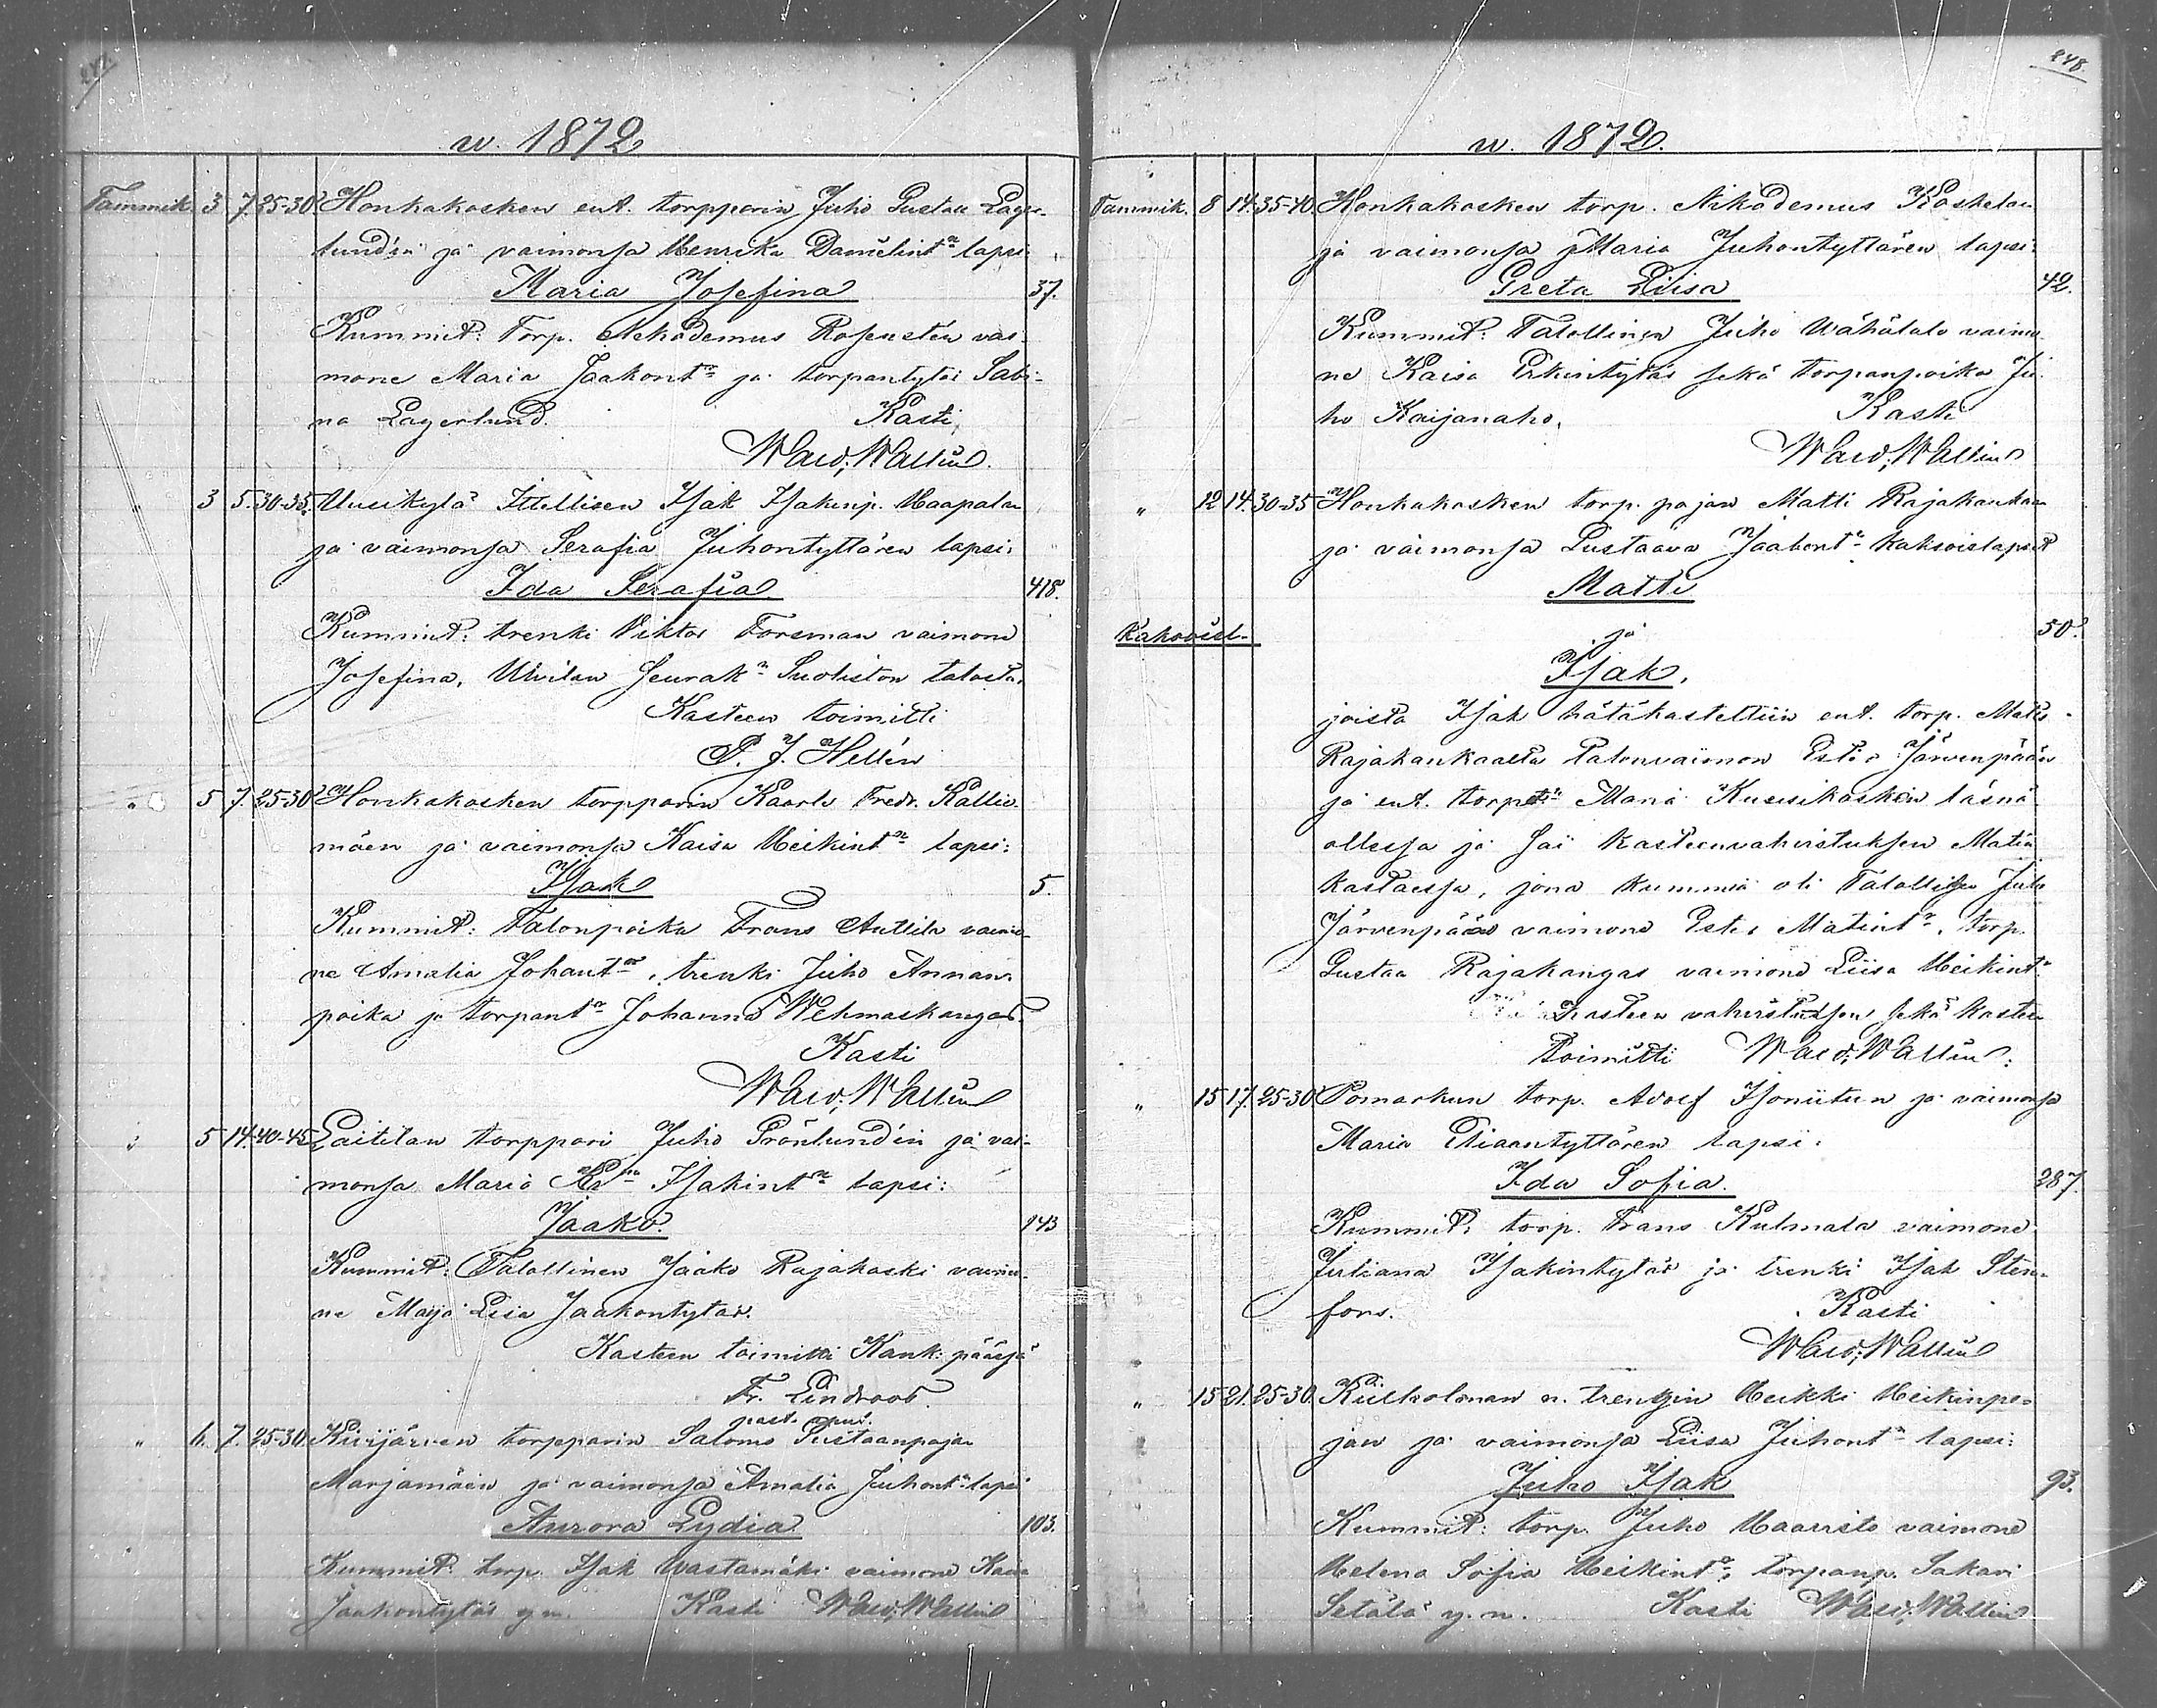 247.
v. 1872
Tammik. 3 7. 25-30. Honkakosken ent. torpparin Juho Gustaa Lager-
lund'in ja vaimonsa Henrika Danielint:n lapsi:
Maria Josefina 37.
Kummit: Torp. Nikodemus Rosensten vai-
mone Maria Jaakont:r ja torpantytär Sabi-
na Lagerlund. Kasti,
Wald; Wallin.
" 3 5. 30-35. Uusikylä Itellisen Isak Isakinp. Haapalan
ja vaimonsa Serafia Juhontyttären lapsi:
Ida Serafia 418.
Kummit: trenki Viktor Forsman vaimone
Josefina, Ulvilan Seurak:n Suoliston talosta.
Kasteen toimitti
P. J. Hellén
" 5 7. 25-30 Honkakosken torpparin Kaarlo Fredr. Kallio-
mäen ja vaimonsa Kaisa Heikint:n lapsi:
Isak 5.
Kummit: Talonpoika Frans Anttila vaimo-
ne Amalia Johant:r, trenki Juho Annan-
poika ja torpant:r Johanna Wehmaskangas.
Kasti
Wald; Wallin
" 5 14. 40-45 Laitilan torppari Juho Grönlund'in ja vai-
monsa Maria Isakint:n lapsi:
Jaako. 143
Kummit: Talollinen Jaako Rajakoski vaimo-
ne Maja Liisa Jaakontytär.
Kasteen toimitti Kank: pääsjä
Fr. Lindroos.
past. apul.
" 6. 7. 25-30 Kivijärven torpparin Salomo Gustaanpojan
Marjamäen ja vaimonsa Amalia Juhont:n lapsi
Aurora Lydia 103.
Kummit: torp. Isak Wastamäki vaimone Kaisa
Jaakontytär y.m. Kasti Wald; Wallin
248.
v. 1872.
Tammik. 8 14. 35-40. Honkakosken torp. Nikodemus Koskelan
ja vaimonsa Maria Juhontyttären lapsi:
Greta Liisa 42.
Kummit: Talollinen Juho Wähätalo vaimo-
ne Kaisa Erkintytär sekä torpanpoika Ju-
ho Kaijanaho. Kasti
Wald; Wallin
" 12 14. 30-35 Honkakosken torp. pojan Matti Rajakankaan
ja vaimonsa Gustaava Jaakont:n kaksoislapset
Matti
Kaksoisl- ja 50.
Isak.
joista Isak hätäkastettiin ent. torp. Matts
Rajakankaalta Talonvaimon Ester Järvenpään
ja ent. torp. Maria Kuusikosken läsnä
ollessa ja sai kasteenvahvistuksen Matin
kastaessa, jona kummia oli Talollisen Juho
Järvenpään vaimone Ester Matint:r, torp.
Gustaa Rajakangas vaimone Liisa Heikint:r
Kasteen vahvistuksen sekä kasteen
toimitti Wald; Wallin.
" 15 17. 25-30 Pomarkun torp. Adolf Isoniitun ja vaimonsa
Maria Eliaantyttären lapsi:
Ida Sofia. 287.
Kummit: torp. Frans Kulmala vaimone
Juliana Isakintytär ja trenki Isak Sten-
fors. Kasti
Wald; Wallin
" 15 21. 25-30. Kiilholman n. trengin Heikki Heikinpo-
jan ja vaimonsa Liisa Juhont:n lapsi:
Juho Isak 93.
Kummit: torp. Juho Haavisto vaimone
Helena Sofia Heikint:r, torpanp. Sakari
Setälä y. m. Kasti Wald; Wallin